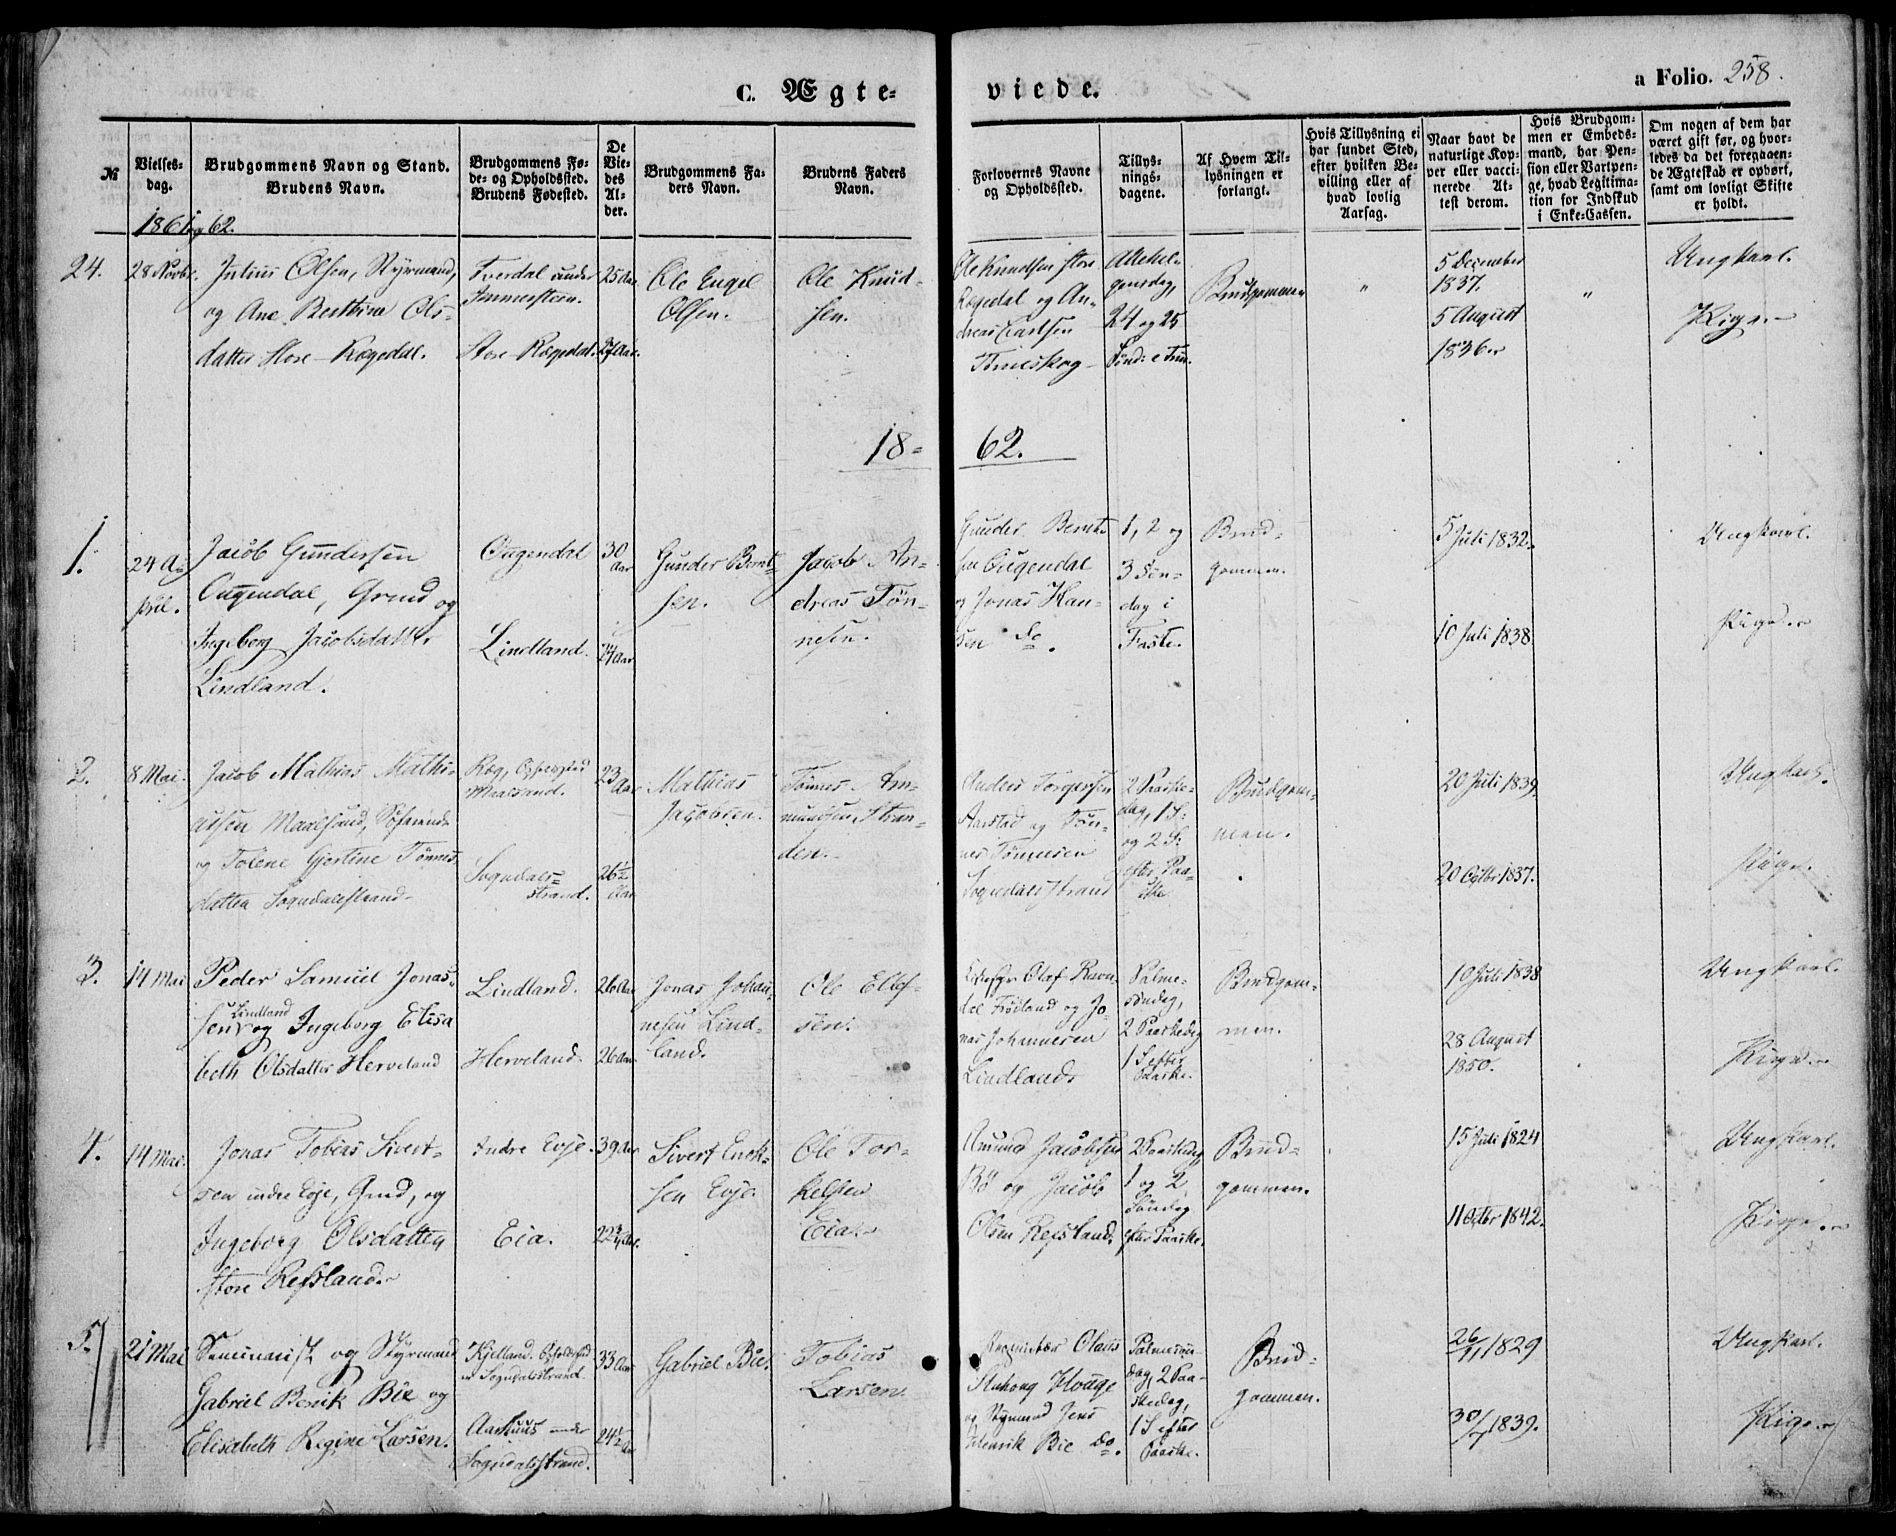 C. Ægte-
viede.
a Folio. 258.
№
Vielses-
dag.
Brudgommens Navn og Stand.
Brudens Navn.
Brudgommens Fø-
de- og Opholdssted.
Brudens Fødested.
De
Vie-
des
Al-
der.
Brudgommens Fa-
ders Navn.
Brudens Faders
Navn.
Forlovernes Navne
og Opholdssted.
Tillys-
nings-
dagene.
Af Hvem Til-
lysningen er
forlangt.
Hvis Tillysning ei
har fundet Sted,
efter hvilken Be-
villing eller af
hvad lovlig
Aarsag.
Naar havt de
naturlige Kop-
per eller vacci-
nerede. At-
test derom.
Hvis Brudgom-
men er Embeds-
mand, har Pen-
sion eller Vartpen-
ge, hvad Legitima-
tion for Indskud
i Enke-Cassen.
Om nogen af dem har
været gift før, og hvor-
ledes da det foregaaen-
de Ægteskab er ophørt,
samt om lovligt Skifte
er holdt.
1861 og 62.
24.
28 Novbr.
Julius Olsen, Styrmand,
og Ane Berthine Ols-
datter Store-Rægedal.
Tverdal under
Immerstein.
Store-Rægedal.
25 Aar
27 Aar.
Ole Engel
Olsen.
Ole Knud-
sen.
Ole Knudsen store
Rægedal og An-
dreas Carlsen
Allehel-
gensdag,
24 og 25
Sønd: e Trin.
Brudgommen
"
5 December
1837.
5 August
1836
"
Ungkarl.
Pige.
18-
62.
1.
24 A-
pril.
Jacob Gundersen
Ougendal, Grmd og
Ingeborg Jacobsdatter
Lindland.
Ougendal
Lindland.
30
Aar
24 Aar
Gunder Bernt-
sen.
Jacob An-
dreas Tøn-
nesen.
Gunder Bernt-
sen Ougendal
og Jonas Han-
sen do.
1, 2 og
3 Søn-
dag i
Faste.
Brud-
gommen.
5 Juli 1832.
10 Juli 1838.
Ungkarl.
Pige.
2.
8 Mai.
Jacob Mathias Mathi-
asen Maalsund, Søfarende
og Tolene Gjertine Tønnes-
datter Sogndalsstrand.
Ræg, Opholdssted
Maalsund.
Sogndals-
strand.
23 Aar
26½
Aar
Mathias
Jacobsen.
Tønnes Am-
mundsen, Stran-
den.
Anders Torgersen
Aarstad og Tøn-
nes Tønnesen
Sogndalsstrand
2 Paaske-
dag, 1 S:
og 2 S:
efter Paa-
ske
Brudgom-
men.
20 Juli 1839.
20 Octbr 1837.
Ungkarl.
Pige.
3.
14 Mai
Peder Samuel Jonas-
sen Lindland og Ingeborg Elisa
beth Olsdatter Herveland
Lindland.
Herveland.
26 Aar
26 Aar
Jonas Johan-
nesen Lind-
land.
Ole Ellef-
sen.
Olaf Ravn-
dal Frøiland og Jo-
nas Johannesen
Lindland
Palme-
søndag,
2 Paaskedag
1 S efter
Paaske.
Brudgom-
men.
10 Juli 1838
28 August
1850.
Ungkarl.
Pige.
4.
14 Mai.
Jonas Tobias Sivert-
sen indre Evje, Grmd, og
Ingeborg Olsdatter
store Refsland.
Indre Evje.
Eia.
39 Aar
22¾ Aar.
Sivert Erik-
sen Evje.
Ole Tor-
kelsen
Eia.
Amund Jacobsen
Bø og Jacob
Olsen Refsland.
2 Paaskedag
1 og 2
Søndag
efter Paaske.
Brud-
gommen.
15 Juli 1824
11 Octbr 1842.
Ungkarl.
Pige.
5.
21 Mai
Seminarist og Styrmand
Gabriel Benik Bie og
Elisabeth Regine Larsen.
Kjelland. Opholdssted
er Sogndalsstrand.
Aarhuus under
Sogndalsstrand.
33 Aar
24½
Aar
Gabriel Bie.
Tobias
Larsen.
Olaus
Houge
og Styrmand Jens
Henrik Bie do.
Palmesøn-
dag, 2 Paa-
skedag,
1 S efter
Paaske.
Brud-
gommen.
26/11 1829
30/7 1839.
Ungkarl.
Pige.